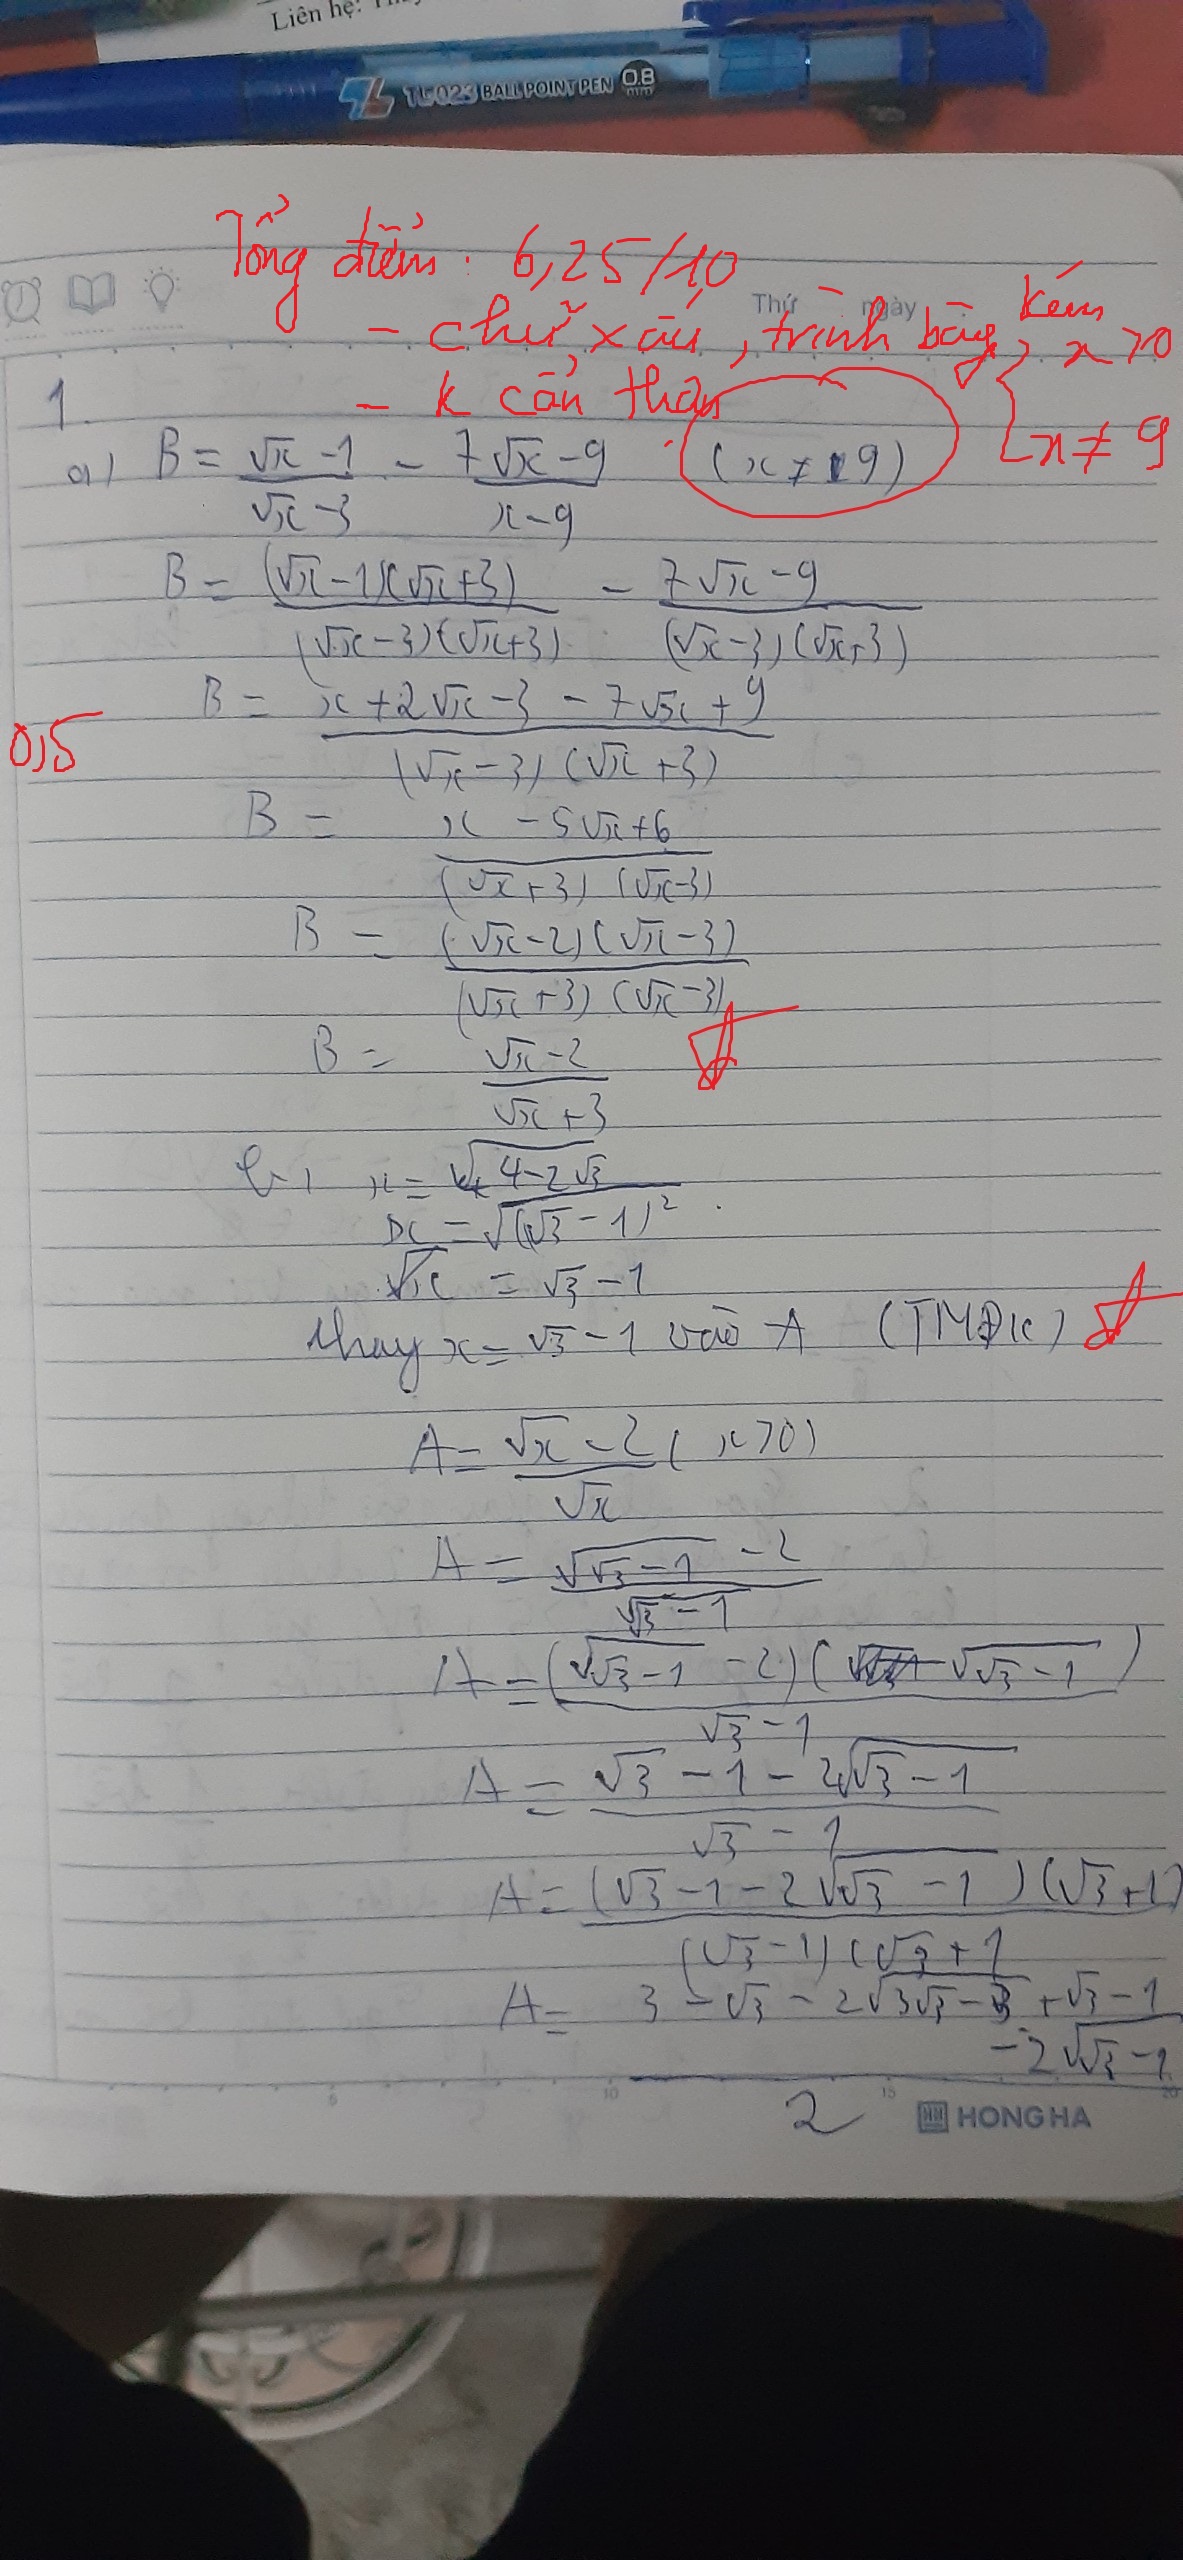 Liên hệ:
TL 023 BALL POINT PEN 0.8 mm
Tổng điểm: 6,25/10
Thứ ngày
- chữ xấu, trình bày kém
- k cẩn thận
{ x>0
x≠9
1
a) B = (√x-1)/(√x-3) - (7√x-9)/(x-9) (x≠9)
B = ((√x-1)(√x+3))/((√x-3)(√x+3)) - (7√x-9)/((√x-3)(√x+3))
B = (x+2√x-3-7√x+9)/((√x-3)(√x+3))
0,5
B = (x-5√x+6)/((√x+3)(√x-3))
B = ((√x-2)(√x-3))/((√x+3)(√x-3))
B = (√x-2)/(√x+3)
b, x = √(4-2√3)
x = √((√3-1)²)
x = √3-1
thay x = √3-1 vào A (TMĐK)
A = (√x-2)/√x (x>0)
A = (√(√3-1)-2)/√(√3-1)
A = ((√(√3-1)-2)(√(√3-1)))/(√3-1)
A = (√3-1-2√(√3-1))/(√3-1)
A = ((√3-1-2√(√3-1))(√3+1))/((√3-1)(√3+1
A = (3-√3-2√(3√3-3)+√3-1-2√(√3-1))/2
5 10 15 20
HONG HA